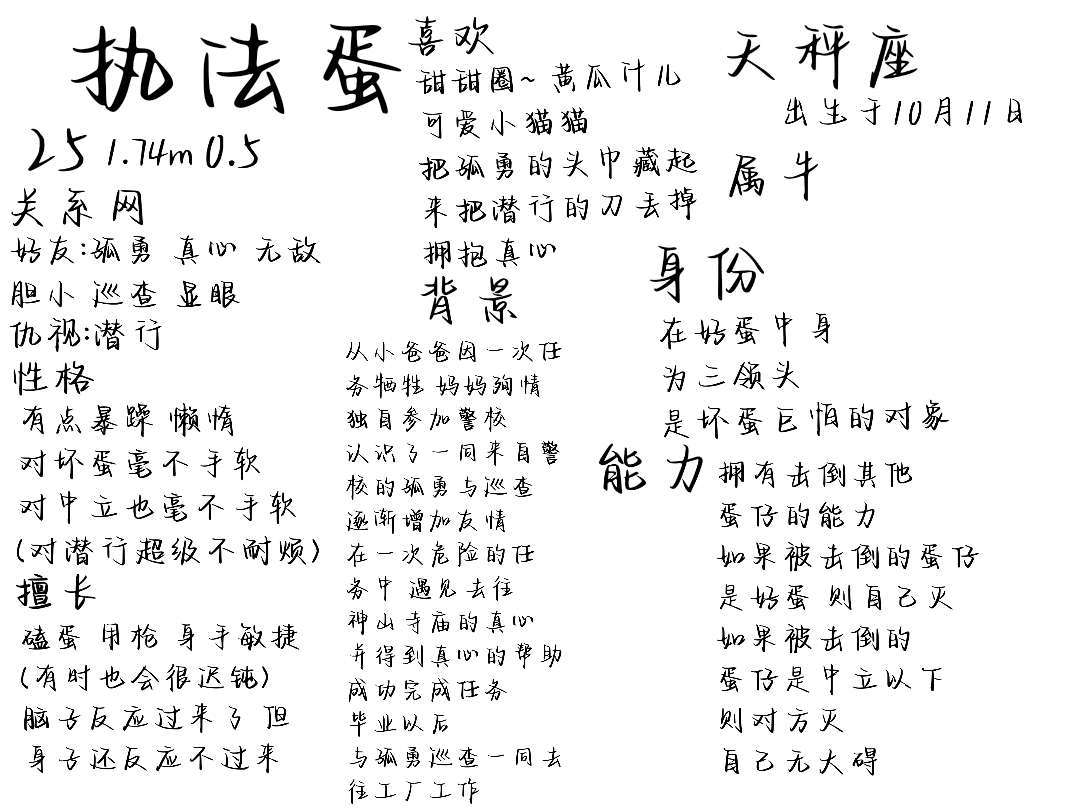 执法蛋
25 1.74m 0.5
关系网
好友:孤勇 真心 无敌
胆小 巡查 显眼
仇视:潜行
性格
有点暴躁 懒惰
对坏蛋毫不手软
对中立也毫不手软
(对潜行超级不耐烦)
擅长
磕蛋 用枪 身手敏捷
(有时也会很迟钝)
脑子反应过来了 但
身子还反应不过来
喜欢
甜甜圈~ 黄瓜汁儿
可爱小猫猫
把孤勇的头巾藏起
来把潜行的刀丢掉
拥抱真心
背景
从小爸爸因一次任
务牺牲 妈妈殉情
独自参加警校
认识了一同来自警
校的孤勇与巡查
逐渐增加友情
在一次危险的任
务中 遇见去往
神山寺庙的真心
并得到真心的帮助
成功完成任务
毕业以后
与孤勇巡查一同去
往工厂工作
天秤座
出生于10月11日
属牛
身份
在好蛋中身
为三领头
是坏蛋巨怕的对象
能力
拥有击倒其他
蛋仔的能力
如果被击倒的蛋仔
是好蛋 则自己灭
如果被击倒的
蛋仔是中立以下
则对方灭
自己无大碍